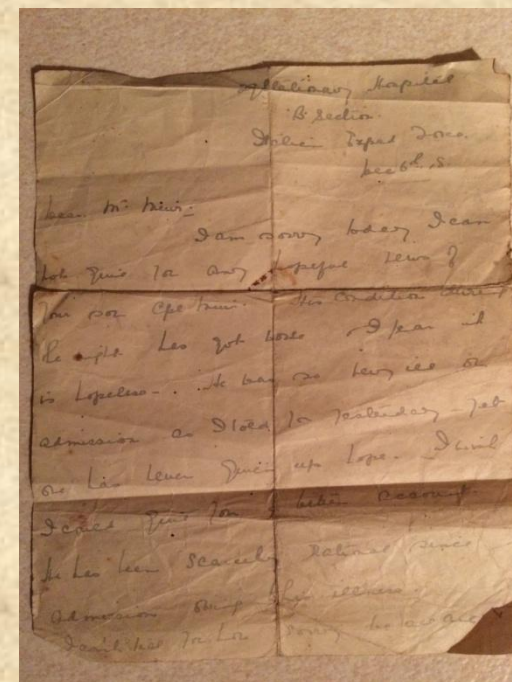 Stationary Hospital
B. Section.
Italian Exped Force.
Dec 6th 18.
Dear Mr Muir:-
I am sorry today I can
not give you any hopeful news of
your son Cpl Muir. His condition during
the night has got worse & I fear it
is hopeless - . He was so very ill on
admission as I told you yesterday - yet
one has never given up hope. I wish
I could give you a better account.
He has been scarcely rational since
admission owing to his illness.
I can't tell you how sorry we are all